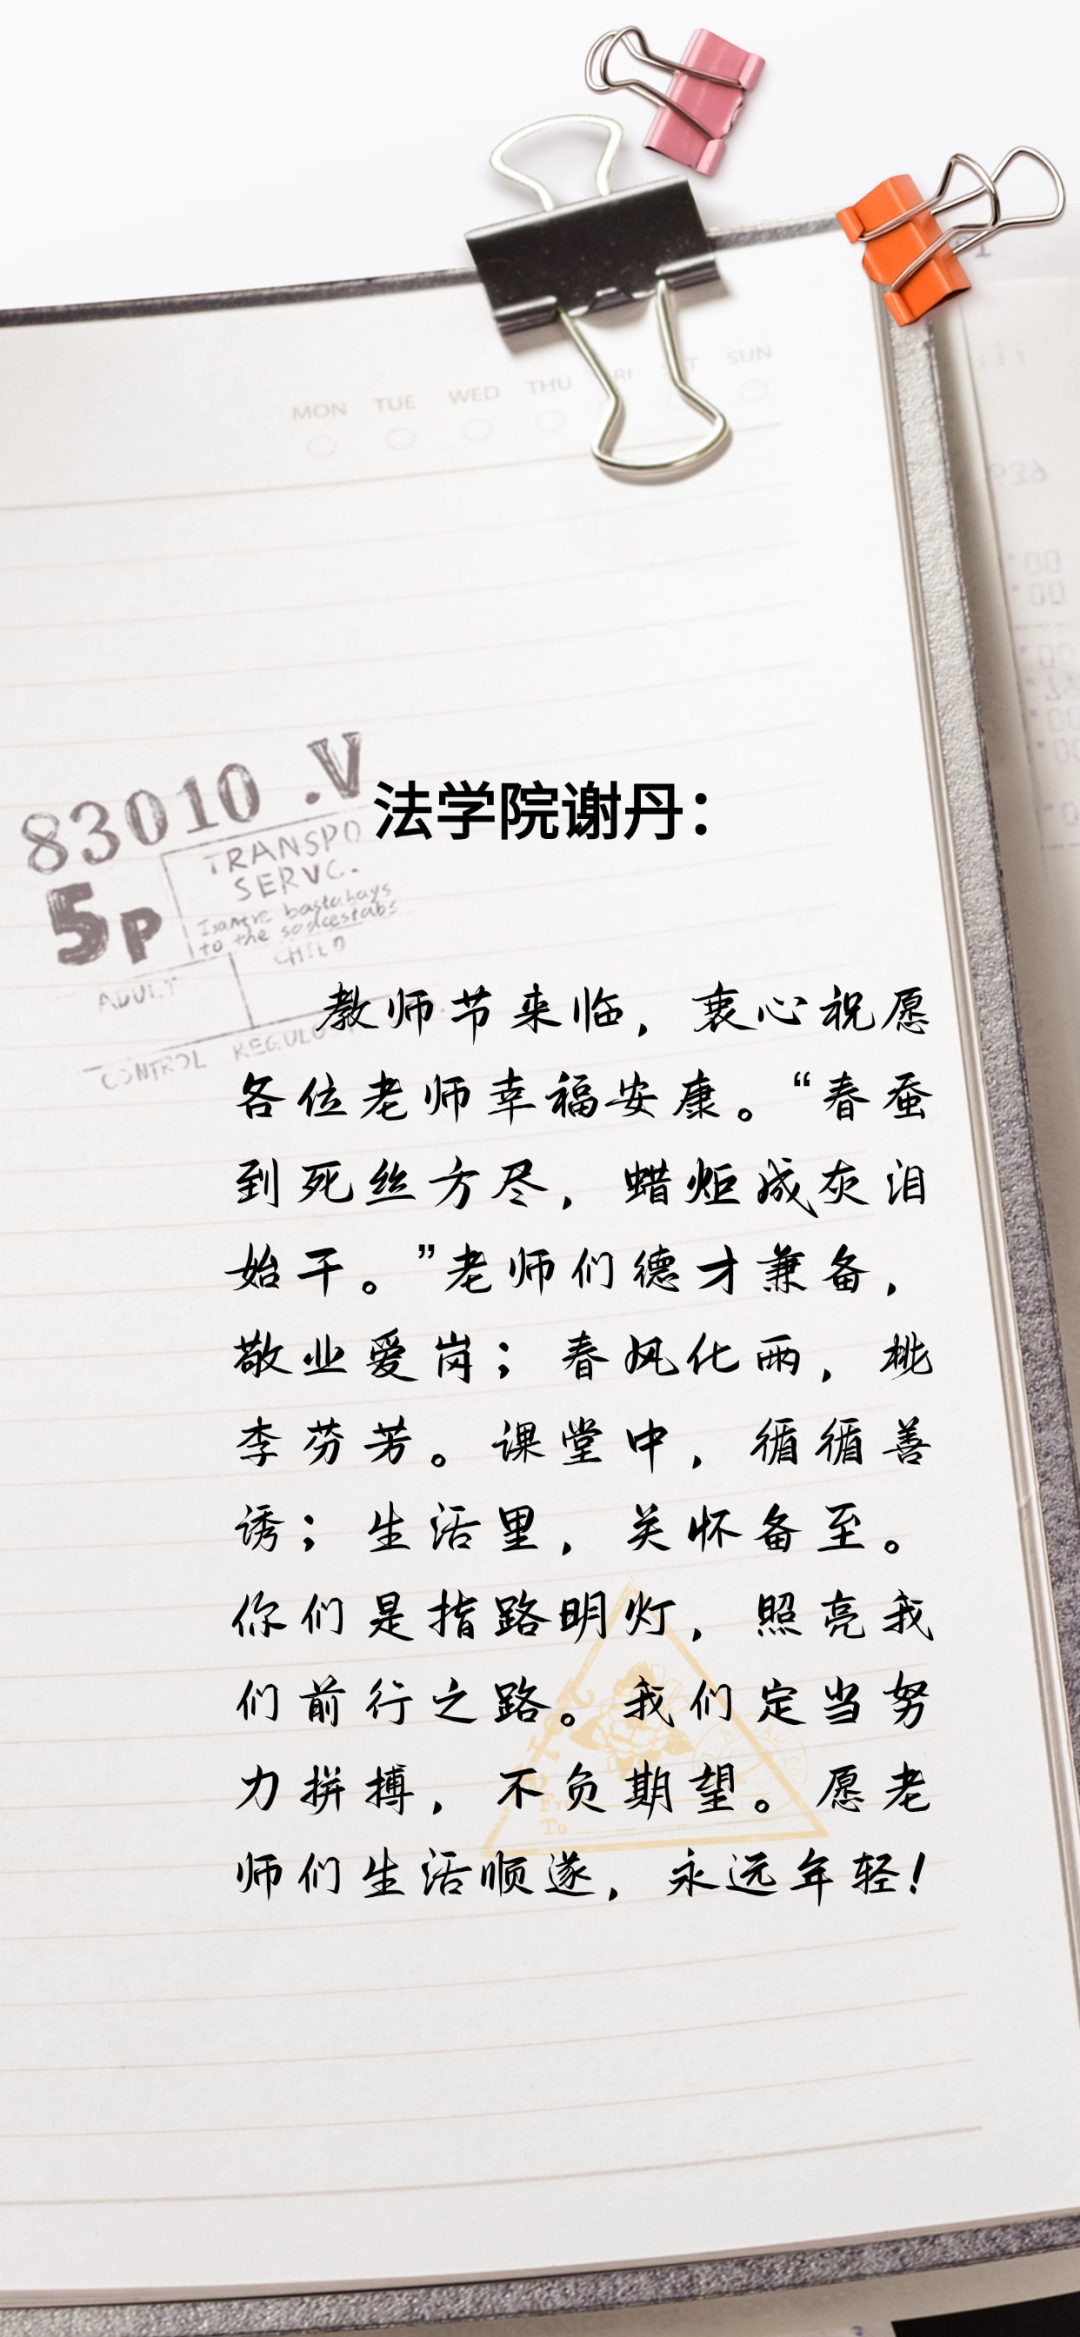 MON TUE WED THU SUN
83010 .V
5P
TRANSPO
SERVC.
to the
CHILD
ADULT
CONTROL REGULO
法学院谢丹：
教师节来临，衷心祝愿
各位老师幸福安康。“春蚕
到死丝方尽，蜡炬成灰泪
始干。”老师们德才兼备，
敬业爱岗；春风化雨，桃
李芬芳。课堂中，循循善
诱；生活里，关怀备至。
你们是指路明灯，照亮我
们前行之路。我们定当努
力拼搏，不负期望。愿老
师们生活顺遂，永远年轻！
To